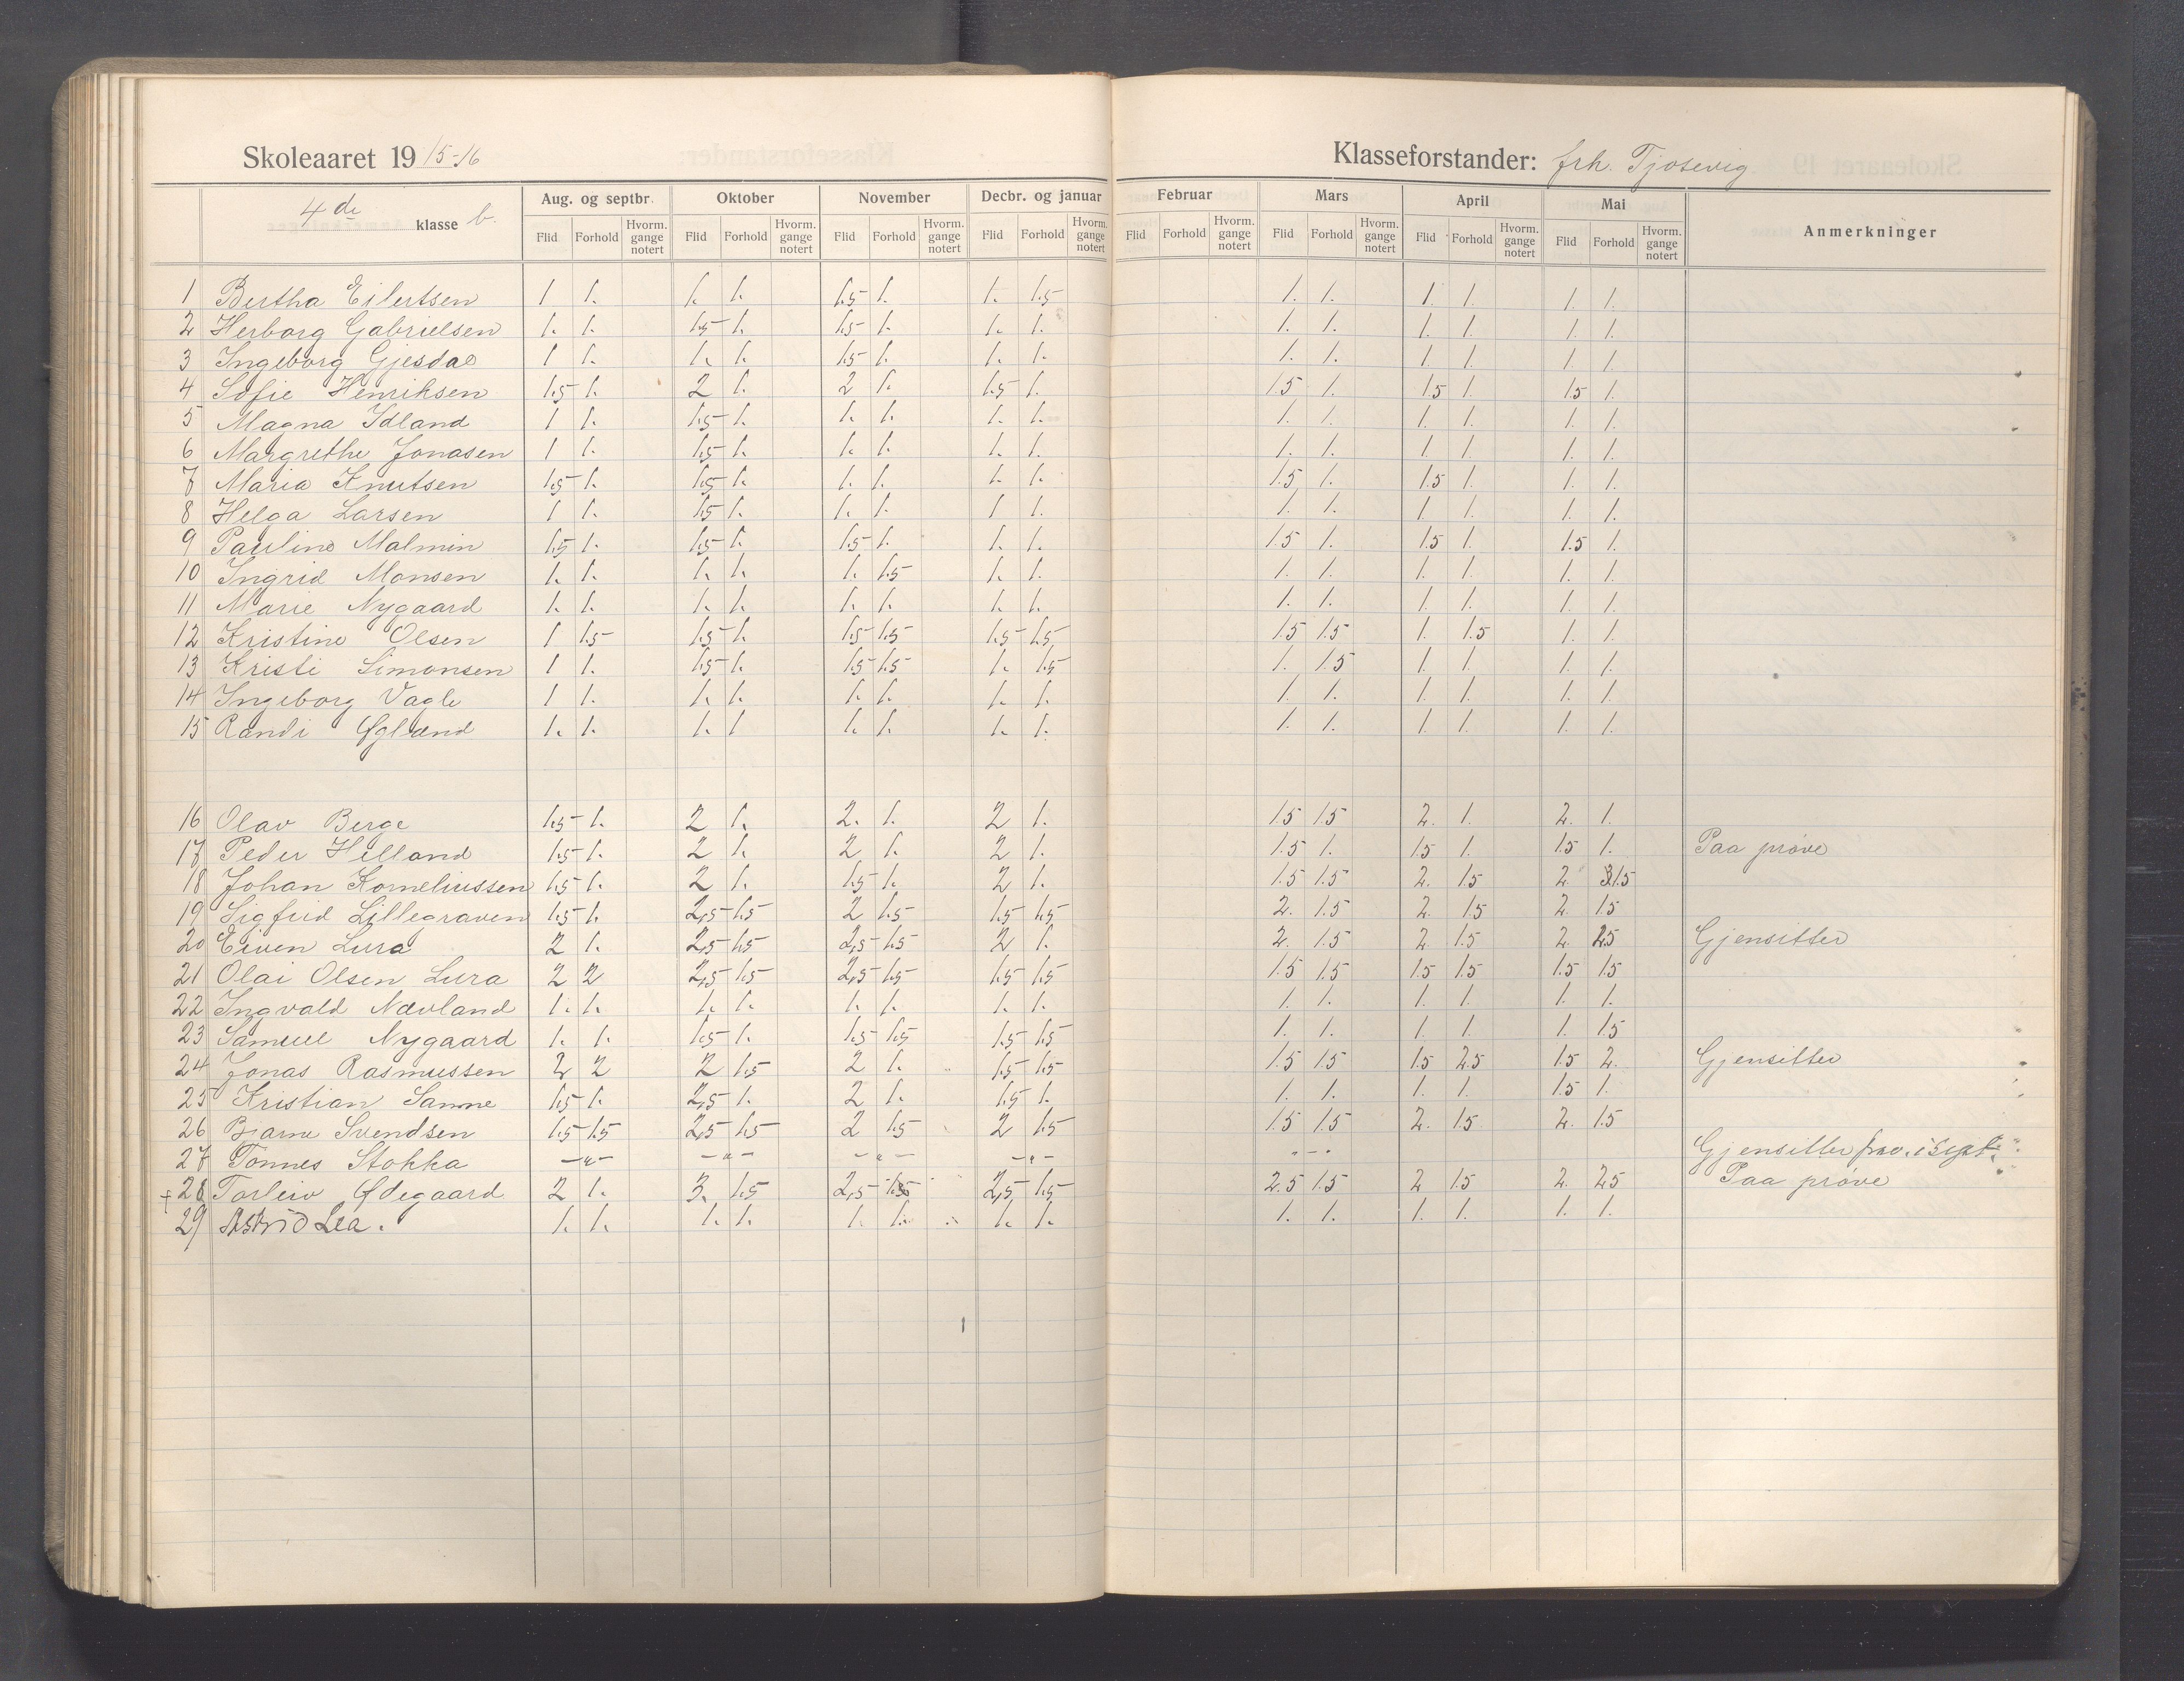 Skoleaaret 1915-16 Klasseforstander: frk. Tjosevig
4de klasse b. Aug. og septbr. Oktober November Decbr. og januar Februar Mars April Mai Anmerkninger
Flid Forhold Hvorm. gange notert Flid Forhold Hvorm. gange notert Flid Forhold Hvorm. gange notert Flid Forhold Hvorm. gange notert Flid Forhold Hvorm. gange notert Flid Forhold Hvorm. gange notert Flid Forhold Hvorm. gange notert Flid Forhold Hvorm. gange notert
1 Bertha Eilertsen 1 1. 1. 1. 1.5 1. 1. 1.5 1. 1. 1. 1. 1. 1.
2 Herborg Gabrielsen 1. 1. 1.5 1. 1.5 1. 1. 1. 1. 1. 1. 1. 1. 1.
3 Ingeborg Gjesdal 1 1. 1. 1. 1.5 1. 1. 1. 1. 1. 1. 1. 1. 1.
4 Sofie Henriksen 1.5 1. 2 1. 2 1. 1.5 1. 1.5 1. 1.5 1. 1.5 1.
5 Magna Idland 1 1. 1.5 1. 1. 1. 1. 1. 1. 1. 1. 1. 1. 1.
6 Margrethe Jonasen 1 1. 1.5 1. 1. 1. 1. 1. 1. 1. 1. 1. 1. 1.
7 Maria Knutsen 1.5 1. 1.5 1. 1. 1. 1. 1. 1.5 1. 1.5 1. 1. 1.
8 Helga Larsen 1 1. 1.5 1. 1. 1. 1 1. 1. 1. 1. 1. 1. 1.
9 Pauline Malmin 1.5 1. 1.5 1. 1.5 1. 1. 1. 1.5 1. 1.5 1. 1.5 1.
10 Ingrid Monsen 1. 1. 1. 1. 1. 1.5 1. 1. 1. 1. 1. 1. 1. 1.
11 Marie Nygaard 1. 1. 1. 1. 1. 1. 1. 1. 1. 1. 1. 1. 1. 1.
12 Kristine Olsen 1 1.5 1.5 1. 1.5 1.5 1.5 1.5 1.5 1.5 1. 1.5 1. 1.
13 Kristi Simonsen 1 1. 1.5 1. 1.5 1.5 1. 1.5 1. 1.5 1. 1. 1. 1.
14 Ingeborg Vagle 1 1. 1. 1. 1. 1. 1. 1. 1. 1. 1. 1. 1. 1.
15 Randi Øgland 1. 1. 1. 1 1. 1. 1. 1. 1. 1. 1. 1. 1. 1.
16 Olav Berge 1.5 1. 2 1. 2. 1. 2 1. 1.5 1.5 2. 1. 2. 1.
17 Peder Helland 1.5 1. 2 1. 2 1. 2 1. 1.5 1. 1.5 1. 1.5 1. Paa prøve
18 Johan Korneliussen 1.5 1. 2 1. 1.5 1. 2 1. 1.5 1.5 2. 1.5 2. 1.5
19 Sigfrid Lillegraven 1.5 1. 2,5 1.5 2 1.5 1.5 1.5 2. 1.5 2. 1.5 2. 1.5
20 Eiven Lura 2 1. 2,5 1.5 2,5 1.5 2 1. 2. 1.5 2. 1.5 2. 2.5 Gjensitter
21 Olai Olsen Lura 2 2 2,5 1.5 2,5 1.5 1.5 1.5 1.5 1.5 1.5 1.5 1.5 1.5
22 Ingvald Nævland 1. 1. 1. 1. 1. 1. 1. 1. 1. 1. 1. 1. 1. 1.
23 Samuel Nygaard 1. 1. 1.5 1. 1.5 1.5 1.5 1.5 1. 1. 1. 1. 1. 1.5
24 Jonas Rasmussen 2 2 2 1.5 2 1. 1.5 1.5 1.5 1.5 1.5 2.5 1.5 2. Gjensitter
25 Kristian Sanne 1.5 1. 2,5 1. 2 1. 1.5 1. 1. 1. 1. 1. 1.5 1.
26 Bjarne Svendsen 1.5 1.5 2,5 1.5 2 1.5 2 1.5 1.5 1.5 2. 1.5 2. 1.5
27 Tønnes Stokka —"— —"— —"— —"— "—" Gjensitter frav. i Sept.
+28 Torleiv Ødegaard 2 1. 3. 1.5 2,5 1.5 2,5 1.5 2.5 1.5 2 1.5 2. 2.5 Paa prøve
29 Astrid Lea. 1. 1. 1. 1. 1. 1. 1. 1. 1. 1. 1. 1. 1. 1.